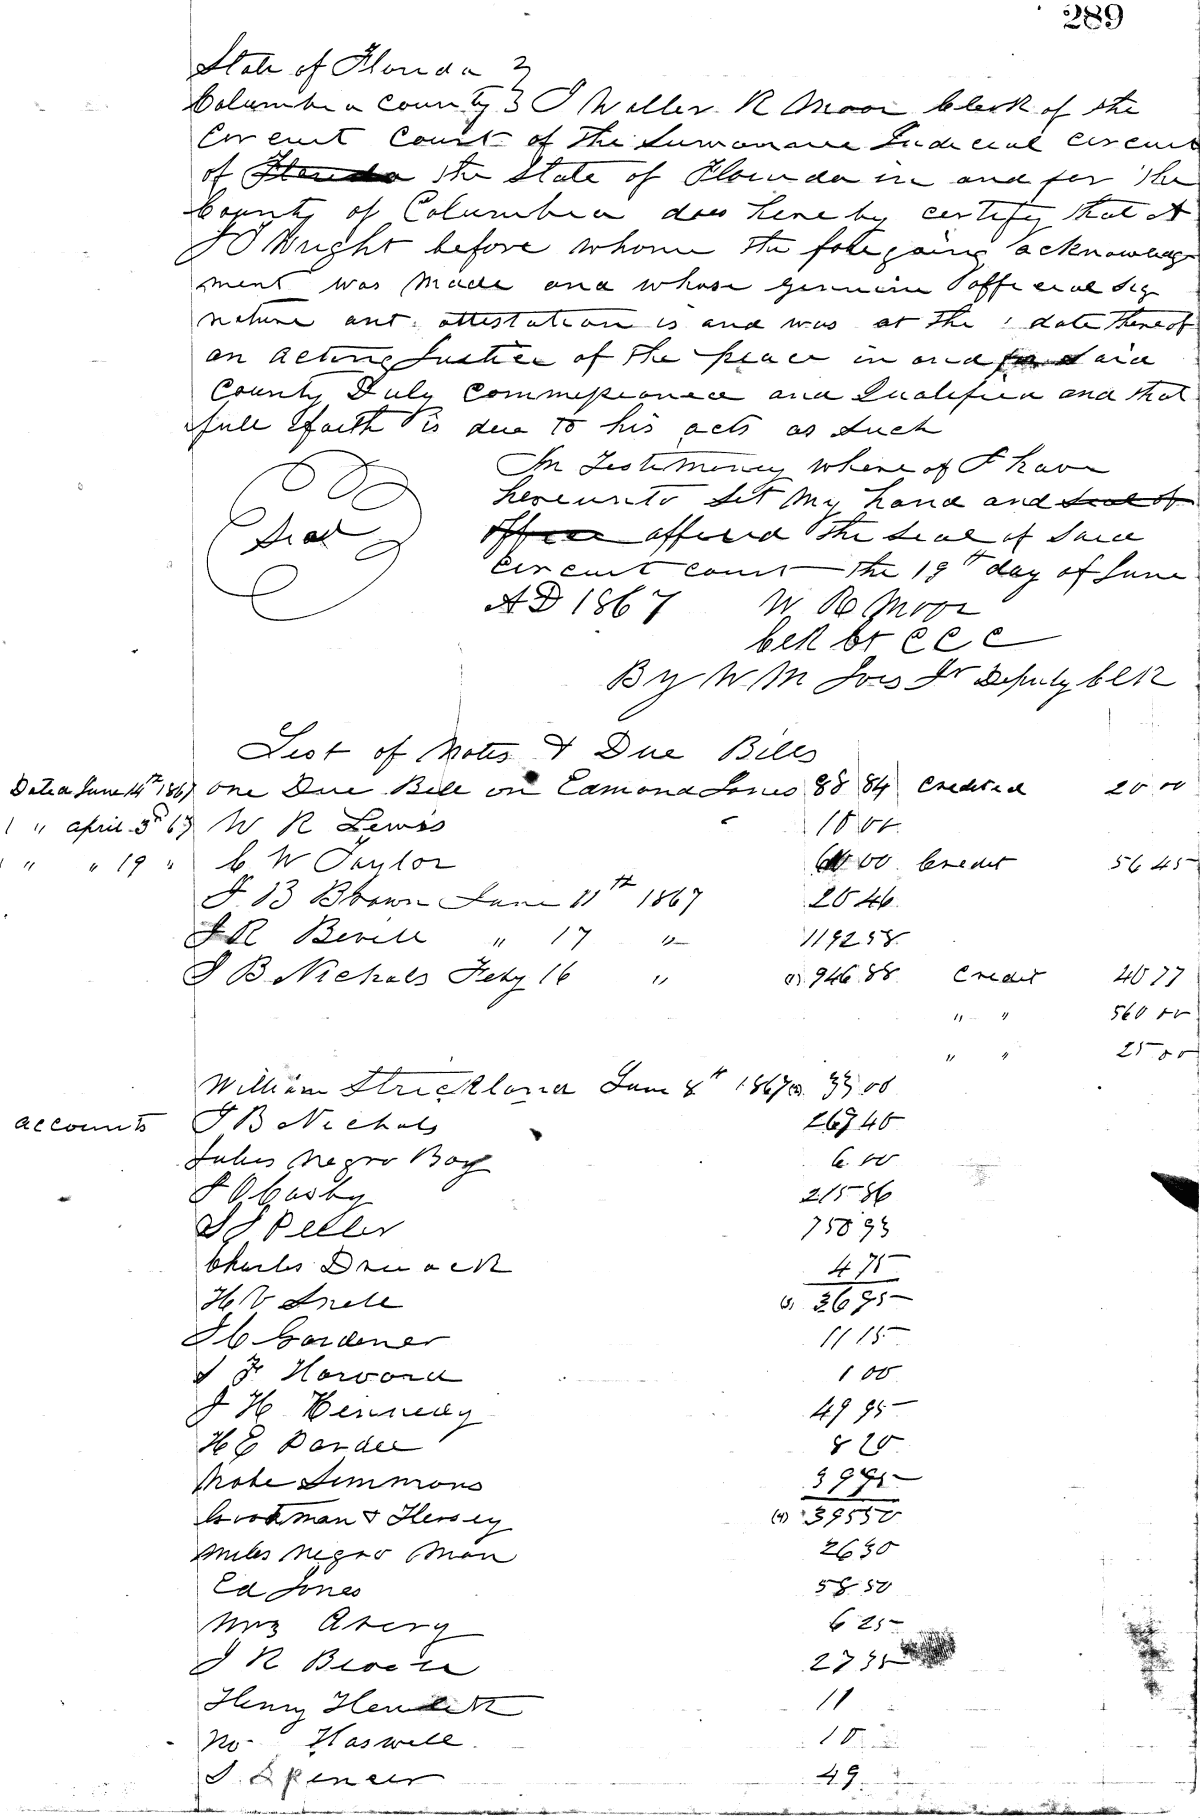 289
State of Florida }
Columbia County } I Walter R Moor Clerk of the
Circuit Court of the Suwannee Judicial circuit
of Florida the State of Florida in and for the
County of Columbia does hereby certify that A
J O Wright before whome the foregoing acknowledg
ment was made and whose genuine official sig
nature ant attestation is and was at the date thereof
an acting Justice of the peace in and for Said
County Duly Commissioned and Qualified and that
full faith is due to his acts as such
In Testimoney where of I have
hereunto Set my hand and seal of
office affixed the seal of Said
Seal
Circuit court the 19th day of June
AD 1867 W R Moor
Clk Ct C C C
By W M Ives Jr Deputy Clk
List of notes & Due Bills
Dated June 14th 1867 one Due Bill on Edmond Jones 88 84 Credited 20 00
" april 3d 67 W R Lewis 10 00
" " 19 " C W Taylor 00 Credit 56 45
J B Brown June 11th 1867 20 46
J R Bevill " 17 " 1192 58
J B Nichols Feby 16 " 946 88 Credit 40 77
" " 560 00
" " 25 00
William Strickland June 8th 1867 33 00
accounts J B Nichols 267 40
Jukes Negro Boy 6 00
J O Casby 215 86
S J Peeler 750 93
Charles 4 75
H V Snell (3) 36 95
J C Gardener 11 15
J F Harvard 1 00
J H Kennedy 49 95
H E Pardee 8 20
Mobe Simmons 39 95
Goodman & Hersey (4) 395 50
Miles negro man 26 30
Ed Jones 58 50
Mrs Avery 6 25
J R 27 35
Henry 11
No Haswell 10
S Spencer 49